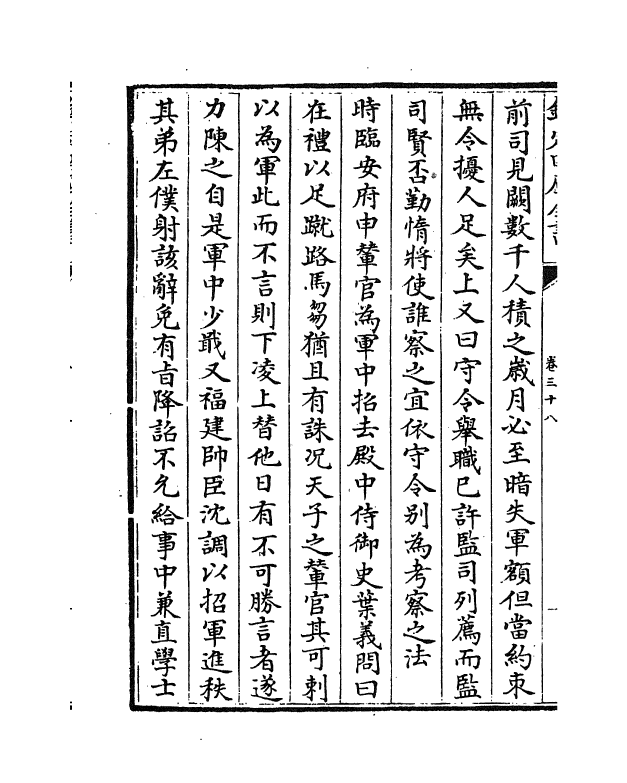 欽定四庫全書
卷三十八
前司見闕數千人積之歲月必至暗失軍額但當約束
無令擾人足矣上又曰守令舉職已許監司列薦而監
司賢否勤惰將使誰察之宜依守令别為考察之法
時臨安府申輦官為軍中招去殿中侍御史葉義問曰
在禮以足蹴路馬芻猶且有誅况天子之輦官其可刺
以為軍此而不言則下凌上替他日有不可勝言者遂
力陳之自是軍中少戢又福建帥臣沈調以招軍進秩
其弟左僕射該辭免有㫖降詔不允給事中兼直學士